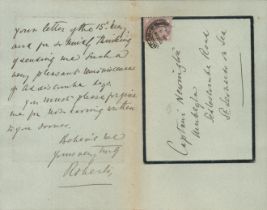 your letter of the 15th
and for so kindly thinking
of sending me such a
very pleasant reminiscence
of Addiscombe days.
You must please forgive
me for not having written
to you sooner.
Believe me
Yours very truly
Roberts
Captain
Addiscombe Road
St. Leonards on Sea